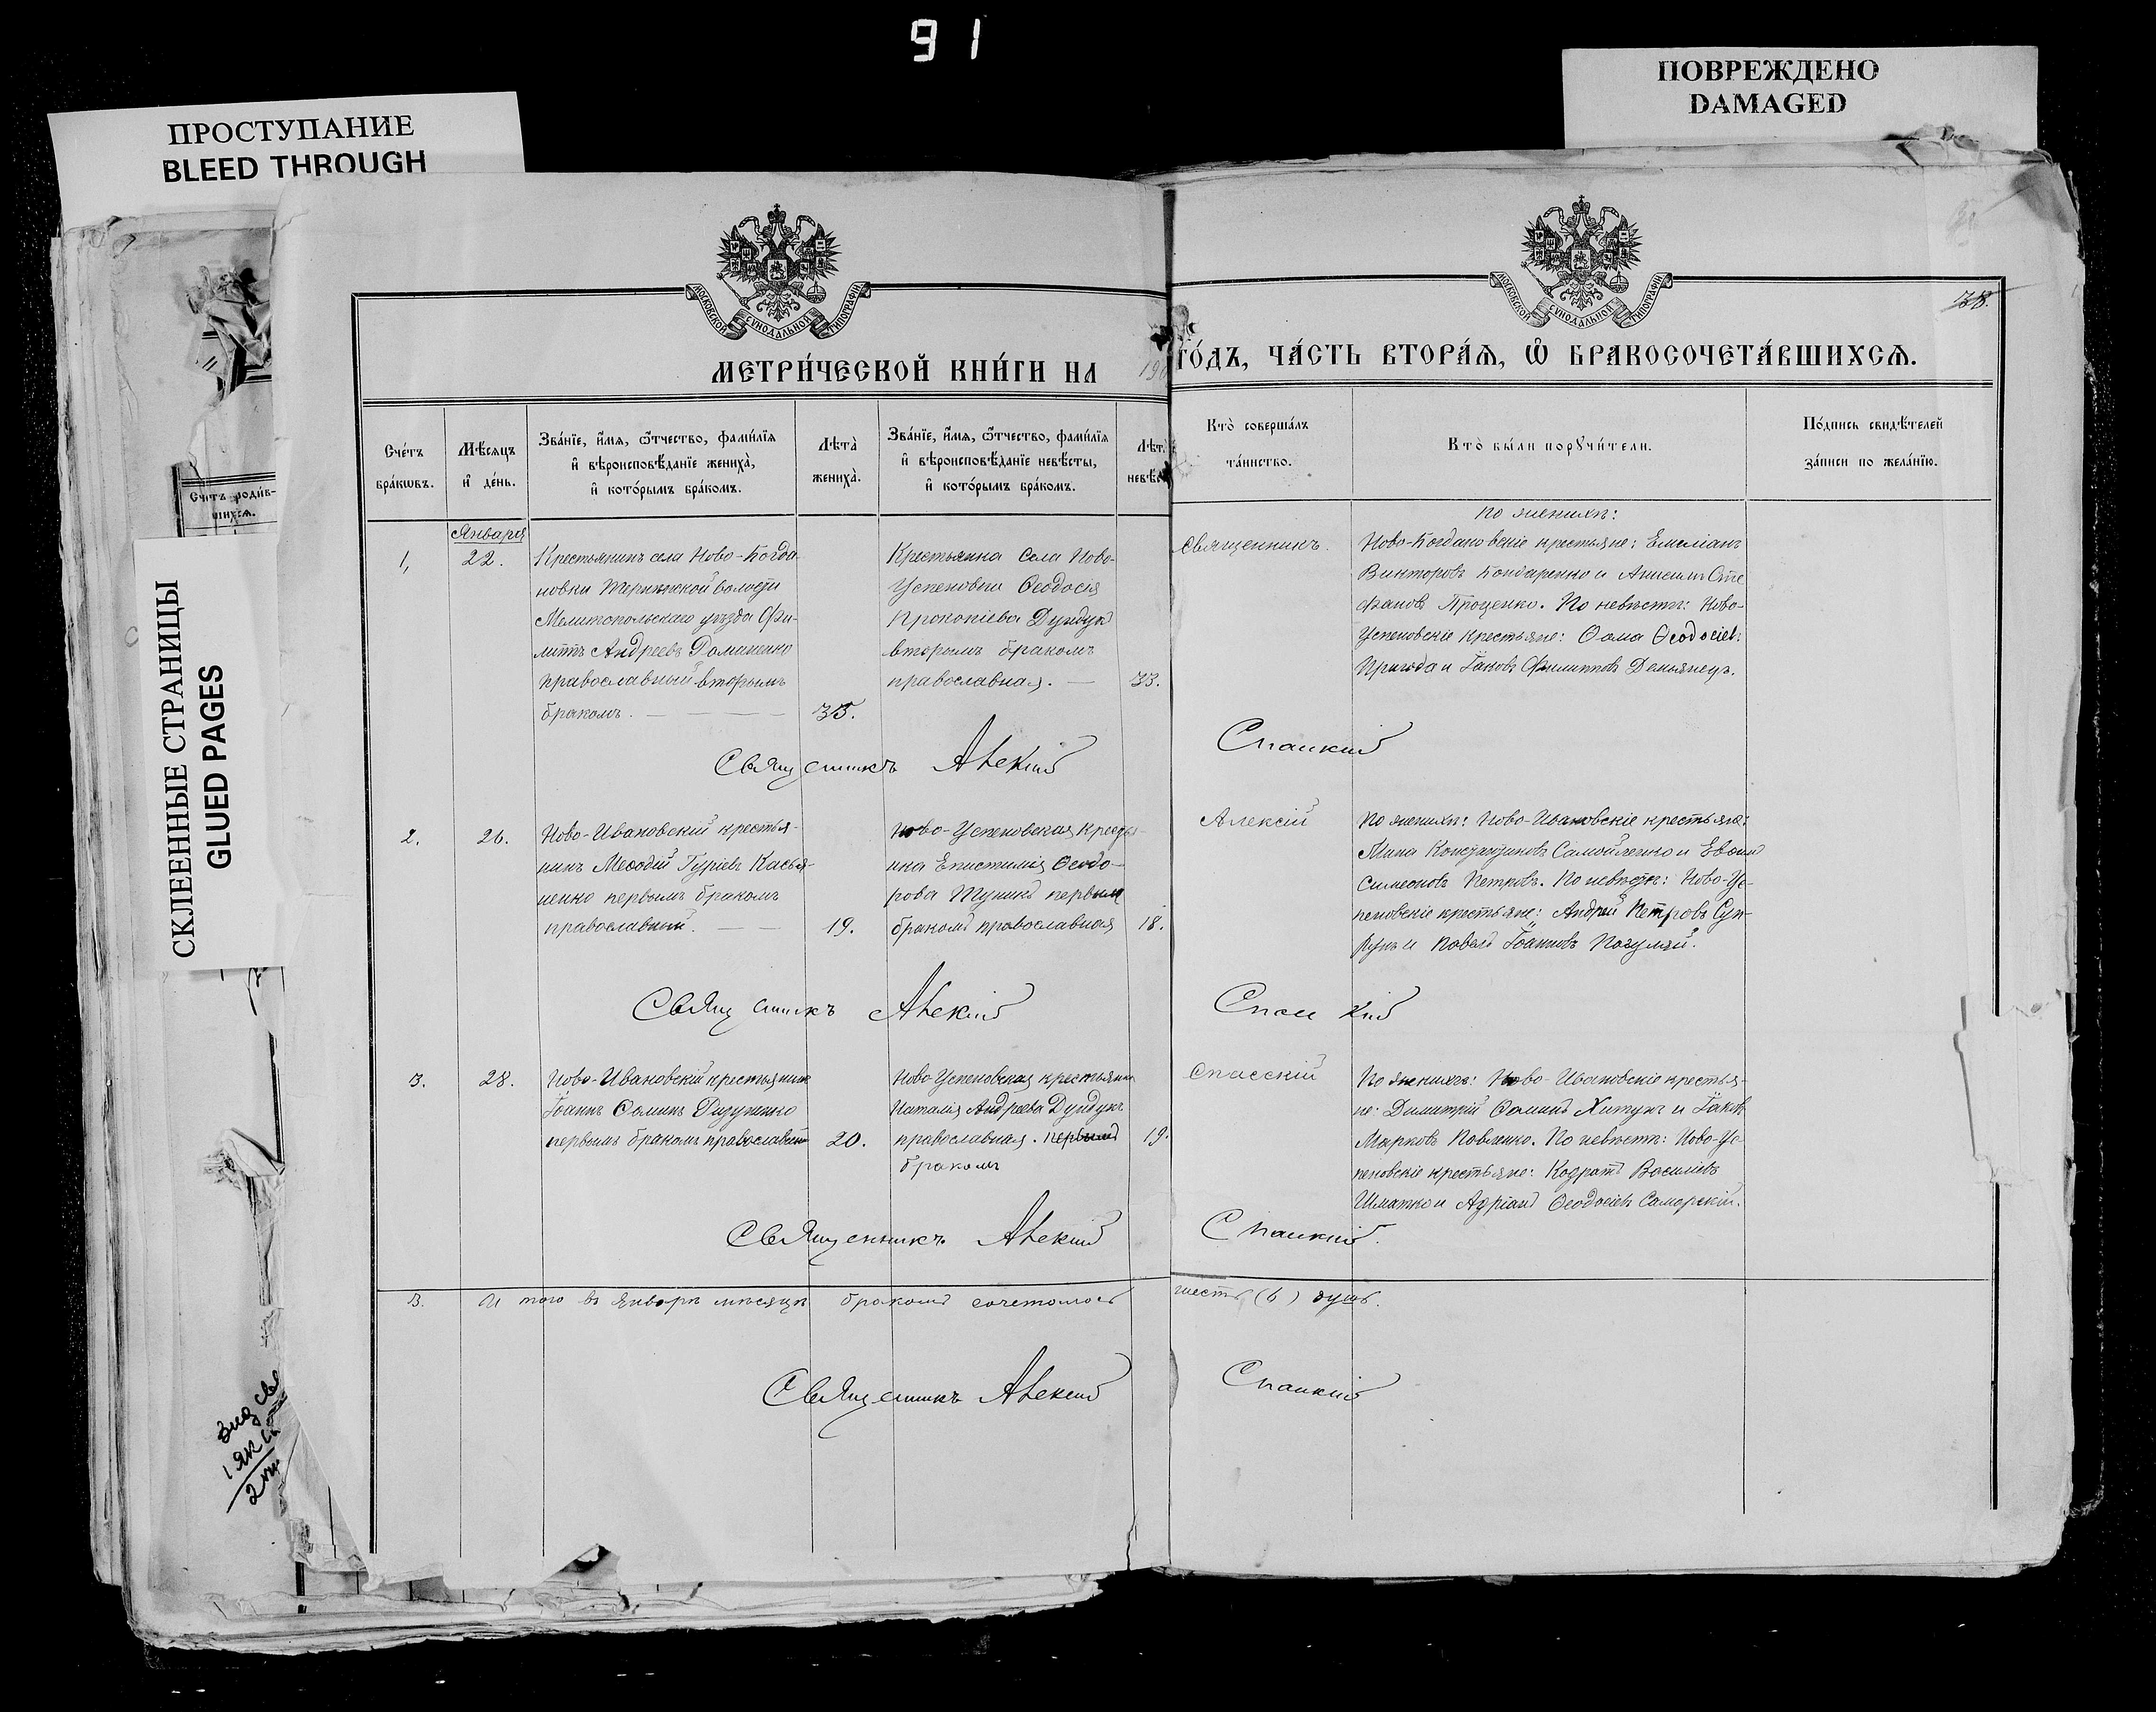 91
ПРОСТУПАНИЕ
BLEED THROUGH
ПОВРЕЖДЕНО
DAMAGED
СКЛЕЕННЫЕ СТРАНИЦЫ
GLUED PAGES
МОСКОВСКОЙ СУНОДАЛЬНОЙ ТИПОГРАФІИ
МОСКОВСКОЙ СУНОДАЛЬНОЙ ТИПОГРАФІИ
38.
МЕТРИ́ЧЕСКОЙ КНИ́ГИ НА 190
ГО́ДЪ, ЧА́СТЬ ВТОРА́Ѧ, Ѽ БРАКОСОЧЕТА́ВШИХСѦ.
Сче́тъ
бра́кѡвъ.
Мѣ́сѧцъ
и҆ де́нь.
Зва́нїе, и҆́мѧ, ѻ҆́тчество, фами́лїѧ
и҆ вѣроисповѣ́данїе жениха̀,
и҆ кото́рымъ бра́комъ.
Лѣта̀
жениха̀.
Зва́нїе, и҆́мѧ, ѻ҆́тчество, фами́лїѧ
и҆ вѣроисповѣ́данїе невѣ́сты,
и҆ кото́рымъ бра́комъ.
Лѣт
невѣ́с
Кто̀ соверша́лъ
та́инство.
Кто̀ бы́ли порꙋчи́тели.
По́дпись свидѣ́телей
за́писи по жела́нїю.
Счетъ роди́в-
шихсѧ.
Января
1,
22.
Крестьянинъ села Ново-Богда-
новки Терпѣнской волости
Мелитопольскаго уѣзда Фи-
липпъ Андреевъ Доманенко
православный вторымъ
бракомъ.
35.
Крестьянка села Ново-
Успеновки Ѳеодосія
Прокопіева Дундукъ
вторымъ бракомъ
православная.
33.
Священникъ.
По женихѣ:
Ново-Богдановскіе крестьяне: Емеліанъ
Викторовъ Бондаренко и Анисимъ Сте
фановъ Проценко. По невѣстѣ: Ново-
Успеновскіе крестьяне: Ѳома Ѳеодосіевъ
Пригода и Іаковъ Филипповъ Демьянецъ.
Священникъ Алексій
Спасскій
2.
26.
Ново-Ивановскій крестья-
нинъ Меѳодій Гуріевъ Касья-
ненко первымъ бракомъ
православный.
19.
Ново-Успеновская крестья-
нка Епистимія Ѳеодо-
рова первымъ
бракомъ православная
18.
Алексій
По женихѣ: Ново-Ивановскіе крестьяне:
Мина Константиновъ Самойленко и
Симеоновъ Петровъ. По невѣстѣ: Ново-Ус-
пеновскіе крестьяне: Андрей Петровъ Суп-
рунъ и Павелъ Іоанновъ
Священникъ Алексій
Спасскій
3.
28.
Ново-Ивановскій крестьянинъ
Іоаннъ Ѳоминъ
первымъ бракомъ православный
20.
Ново-Успеновская крестьянка
Наталія Андреева Дундукъ
православная. первымъ
бракомъ
19.
Спасскій
По женихѣ: Ново-Ивановскіе крестья-
не: Димитрій Ѳоминъ и Іаковъ
Марковъ Павленко. По невѣстѣ: Ново-Ус-
пеновскіе крестьяне: Кодратъ Василіевъ
Шматко и Адріанъ Ѳеодосіевъ Саморскій.
Священникъ Алексій
Спасскій.
3.
Итого въ Январѣ мѣсяцѣ бракомъ сочеталось
шесть (6) душъ.
Священникъ Алексій
Спасскій